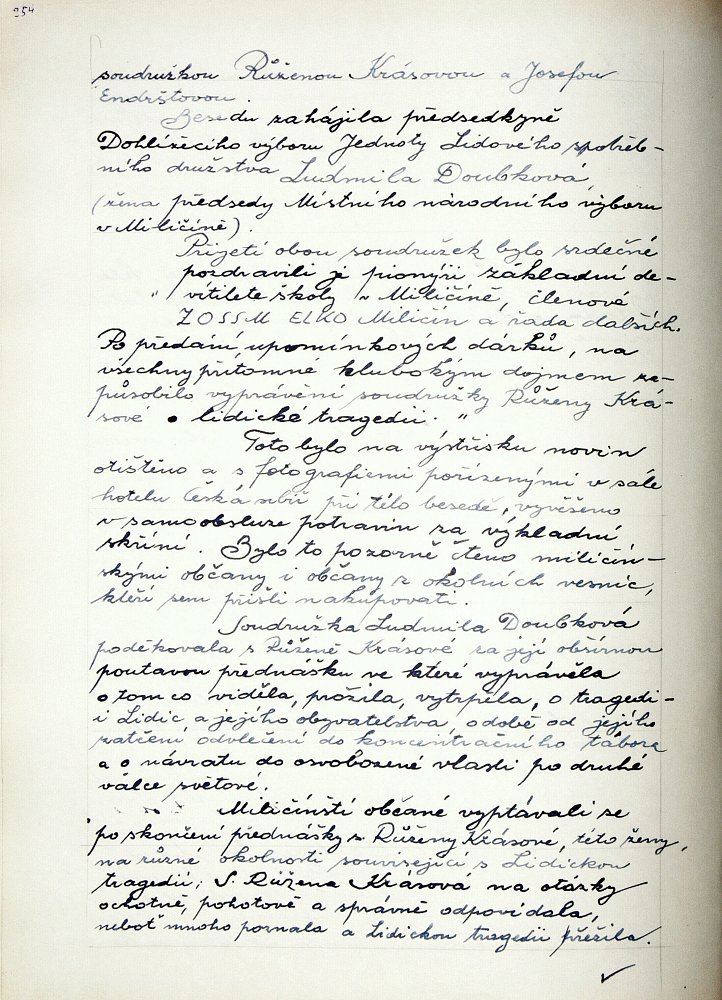 254
soudružkou Růženou Krásovou a Josefou
Endrštovou.
Besedu zahájila předsedkyně
Dohlížecího výboru Jednoty Lidového spotřeb-
ního družstva Ludmila Doubková,
(žena předsedy Místního národního výboru
v Miličíně).
Přijetí obou soudružek bylo srdečné
pozdravili je pionýři základní de-
„ vítileté školy v Miličíně, členové
ZOSSM ELKO Miličín a řada dalších.
Po předání upomínkových dárků, na
všechny přítomné hlubokým dojmem za-
působilo vyprávění soudružky Růženy Krá-
sové o lidické tragedii. "
Toto bylo na výstřisku novin
otištěno a s fotografiemi pořízenými v sále
hotelu Česká sibiř při této besedě, vyvěšeno
v samoobsluze potravin za výkladní
skříní. Bylo to pozorně čteno miličín-
skými občany i občany z okolních vesnic,
kteří sem přišli nakupovati.
Soudružka Ludmila Doubková
poděkovala s Růženě Krásové za její obšírnou
poutavou přednášku ve které vyprávěla
o tom co viděla, prožila, vytrpěla, o tragedi-
i Lidic a jejího obyvatelstva o době od jejího
zatčení odvlečení do koncentračního tábora
a o návratu do osvobozené vlasti po druhé
válce světové.
Miličínští občané vyptávali se
po skončení přednášky s. Růženy Krásové, této ženy,
na různé okolnosti související s Lidickou
tragedií; S. Růžena Krásová na otázky
ochotně, pohotově a správně odpovídala,
neboť mnoho poznala a Lidickou tragedii přežila.